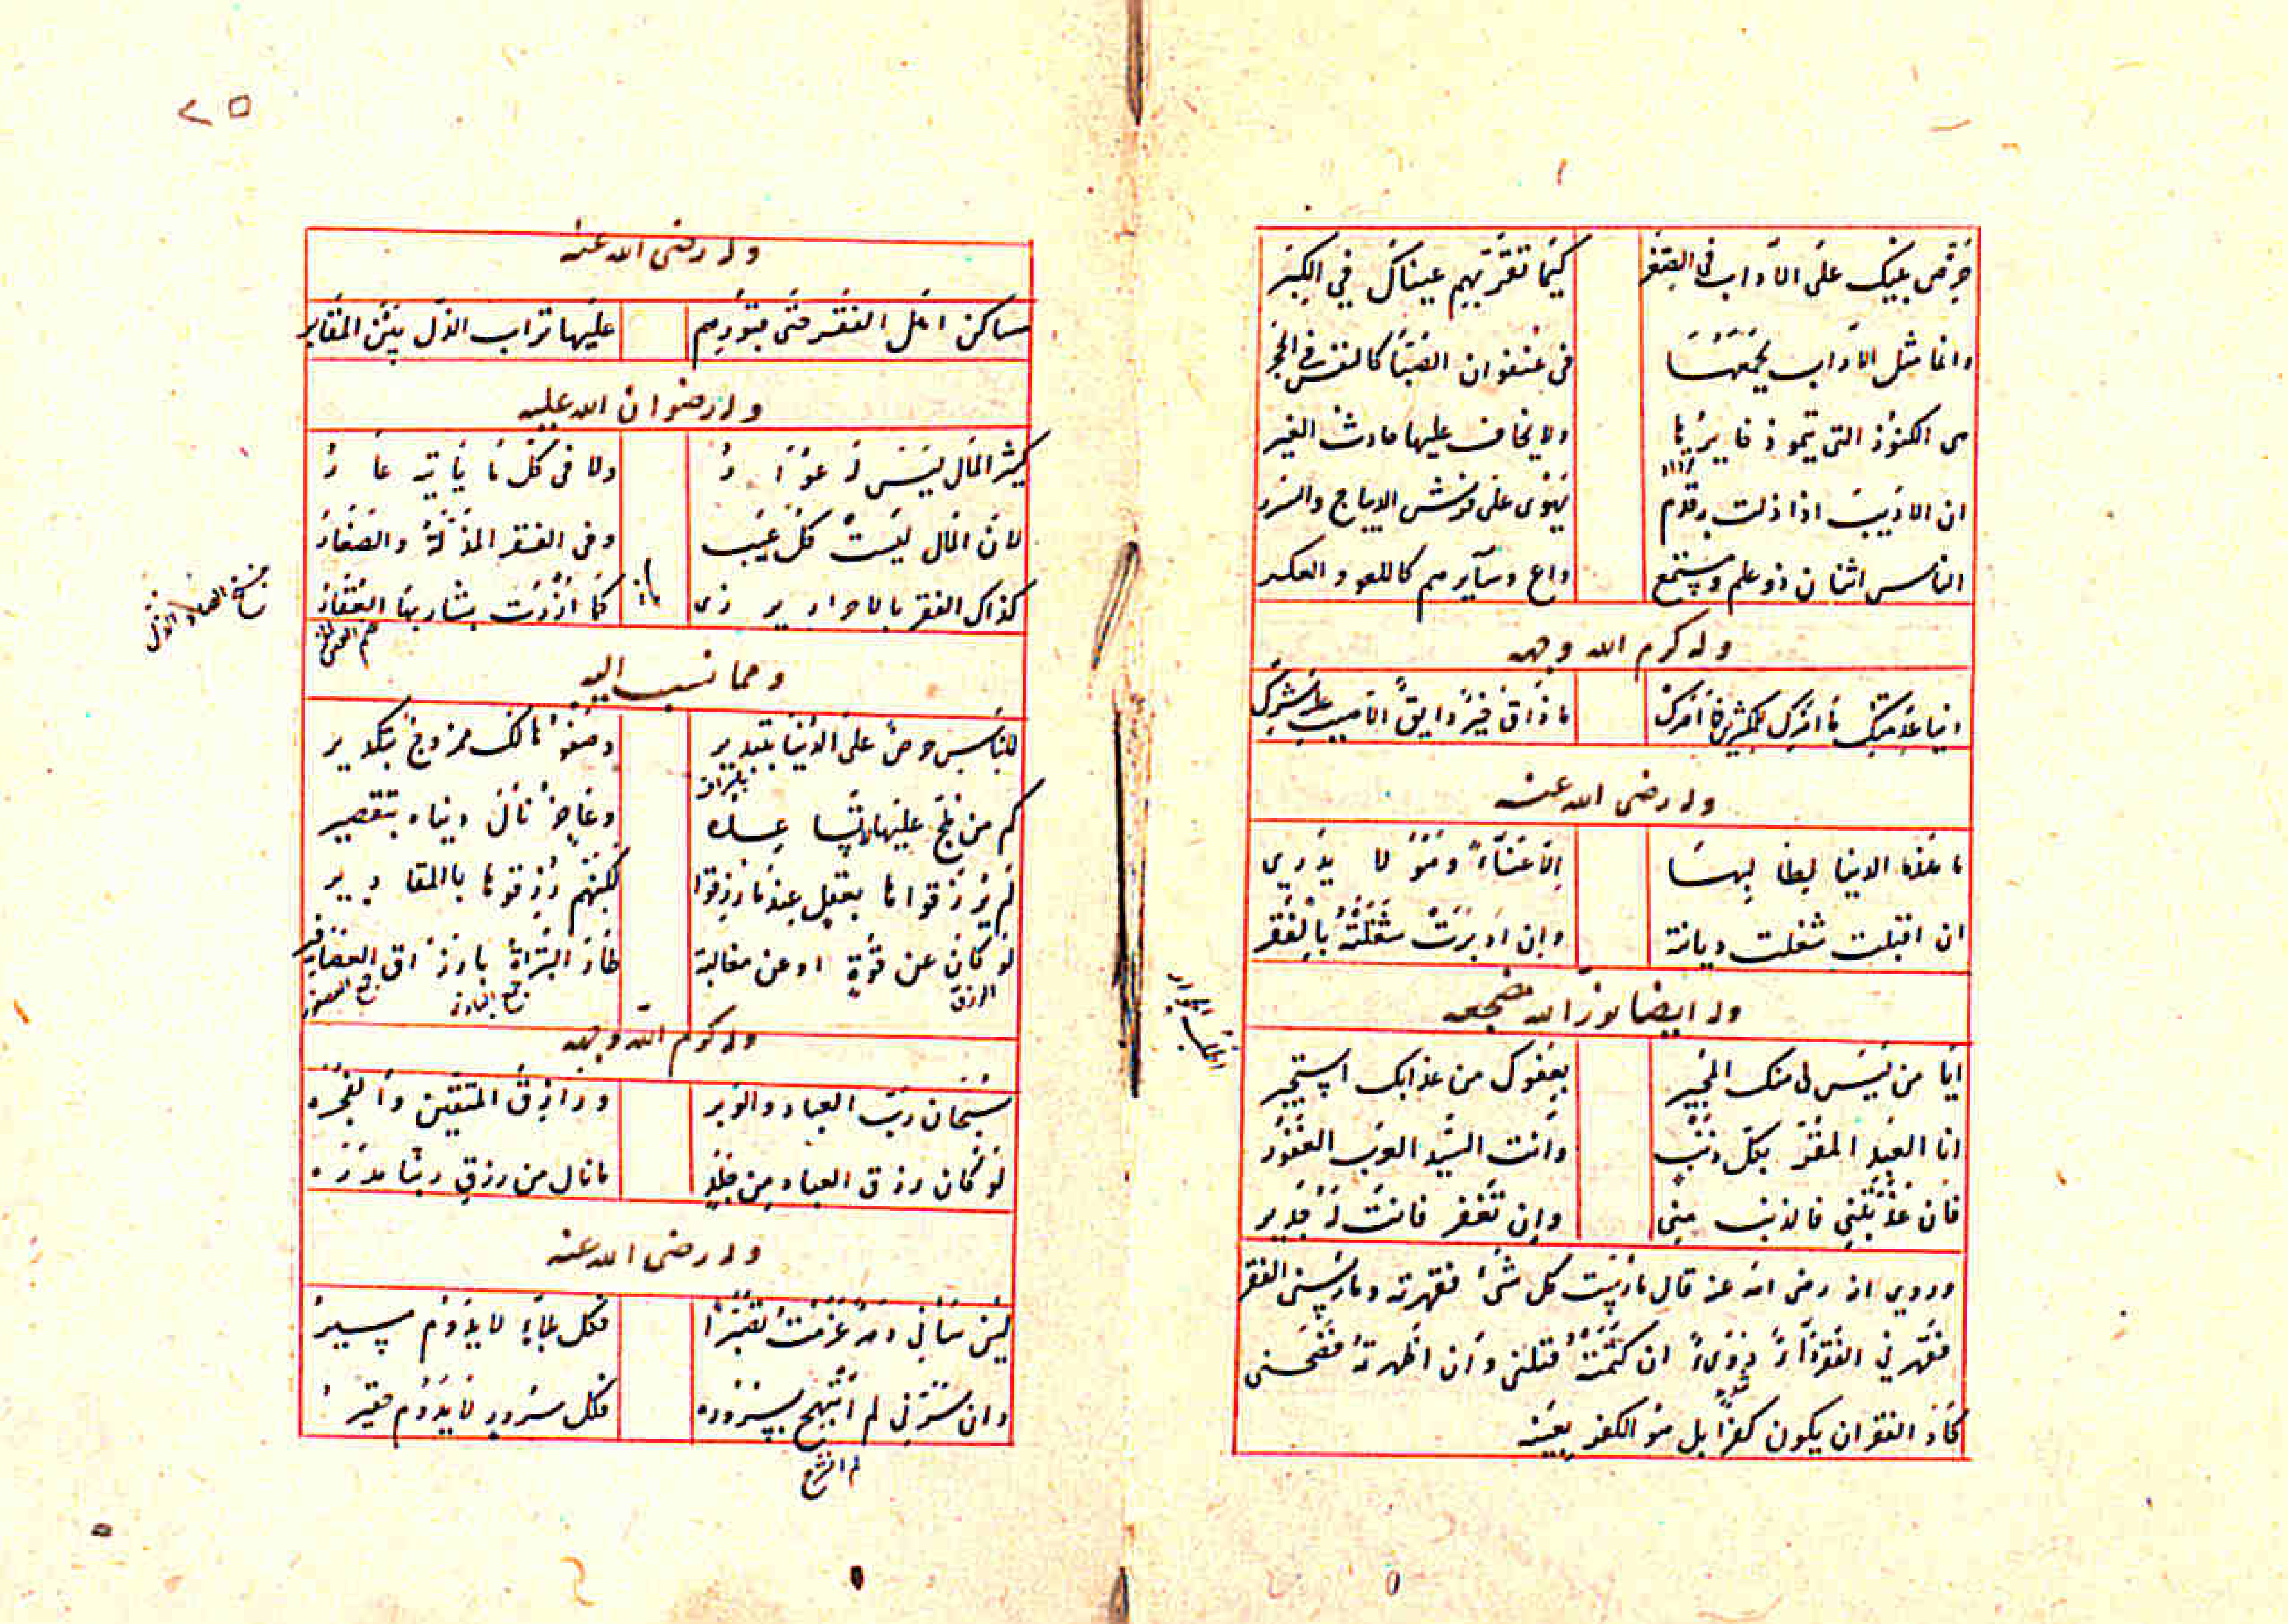 حَرِّضْ بَنِيكَ عَلَى الآدَابِ فِي الصِّغَرِ كَيْمَا تَقَرَّ بِهِمْ عَيْنَاكَ فِي الكِبَرِ
وانما مثل الآداب تجمعها في عنفوان الصبا كالنقش في الحجر
هي الكنوز التي تنمو ذخايرها ولا يخاف عليها حادث الغير
ان الاديب اذا زلت به قدم يهوى على فرش الديباج والسرر
الناس اثنان ذو علم ومستمع واع وسايرهم كاللغو والعكر
وله كرم الله وجهه
وله رضى الله عنه
ما هذه الدنيا لطالبها الا عناء وهو لا يدري
ان اقبلت شغلت ديانته وان ادبرت شغلته بالفقر
وله ايضا نور الله مضجعه
ايا من ليس لى منك المجير بعفوك من عذابك استجير
انا العبد المقر بكل ذنب وانت السيد الرب الغفور
فان عذبتني فالذنب مني وان تغفر فانت له جدير
وروي انه رضى الله عنه قال مارست كل شئ فقهرته ومارسنى الفقر
فقهرني ان كتمته قتلنى وان اظهرته فضحنى
كاد الفقر ان يكون كفرا بل هو الكفر بعينه
٢٥
وله رضى الله عنه
مساكن اهل الفقر حتى قبورهم عليها تراب الذل بين المقابر
وله رضوان الله عليه
كثير المال ليس له عوار ولا في كل ما ياتيه عار
لان المال يستر كل عيب وفى الفقر المذلة والصغار
كذاك الفقر بالاحرار يزرى كما ازرت بشاربها العقار
ومما نسب اليه
للناس حرص على الدنيا بتدبير وصفوها لك ممزوج بتكدير
كم من ملح عليها لا تساعده وعاجز نال دنياه بتقصير
لم يرزقوها بعقل عندما رزقوا لكنهم رزقوها بالمقادير
لو كان عن قوة او عن مغالبة طار البزاة بارزاق العصافير
الرزق
وله كرم الله وجهه
سبحان رب العباد والوبر ورازق المتقين والفجره
لو كان رزق العباد من جلد ما نال من رزق ربنا مدره
وله رضى الله عنه
لئن ساءني دهر عزمت تصبرا فكل بلاء لا يدوم يسير
وان سرني لم ابتهج بسروره فكل سرور لا يدوم حقير